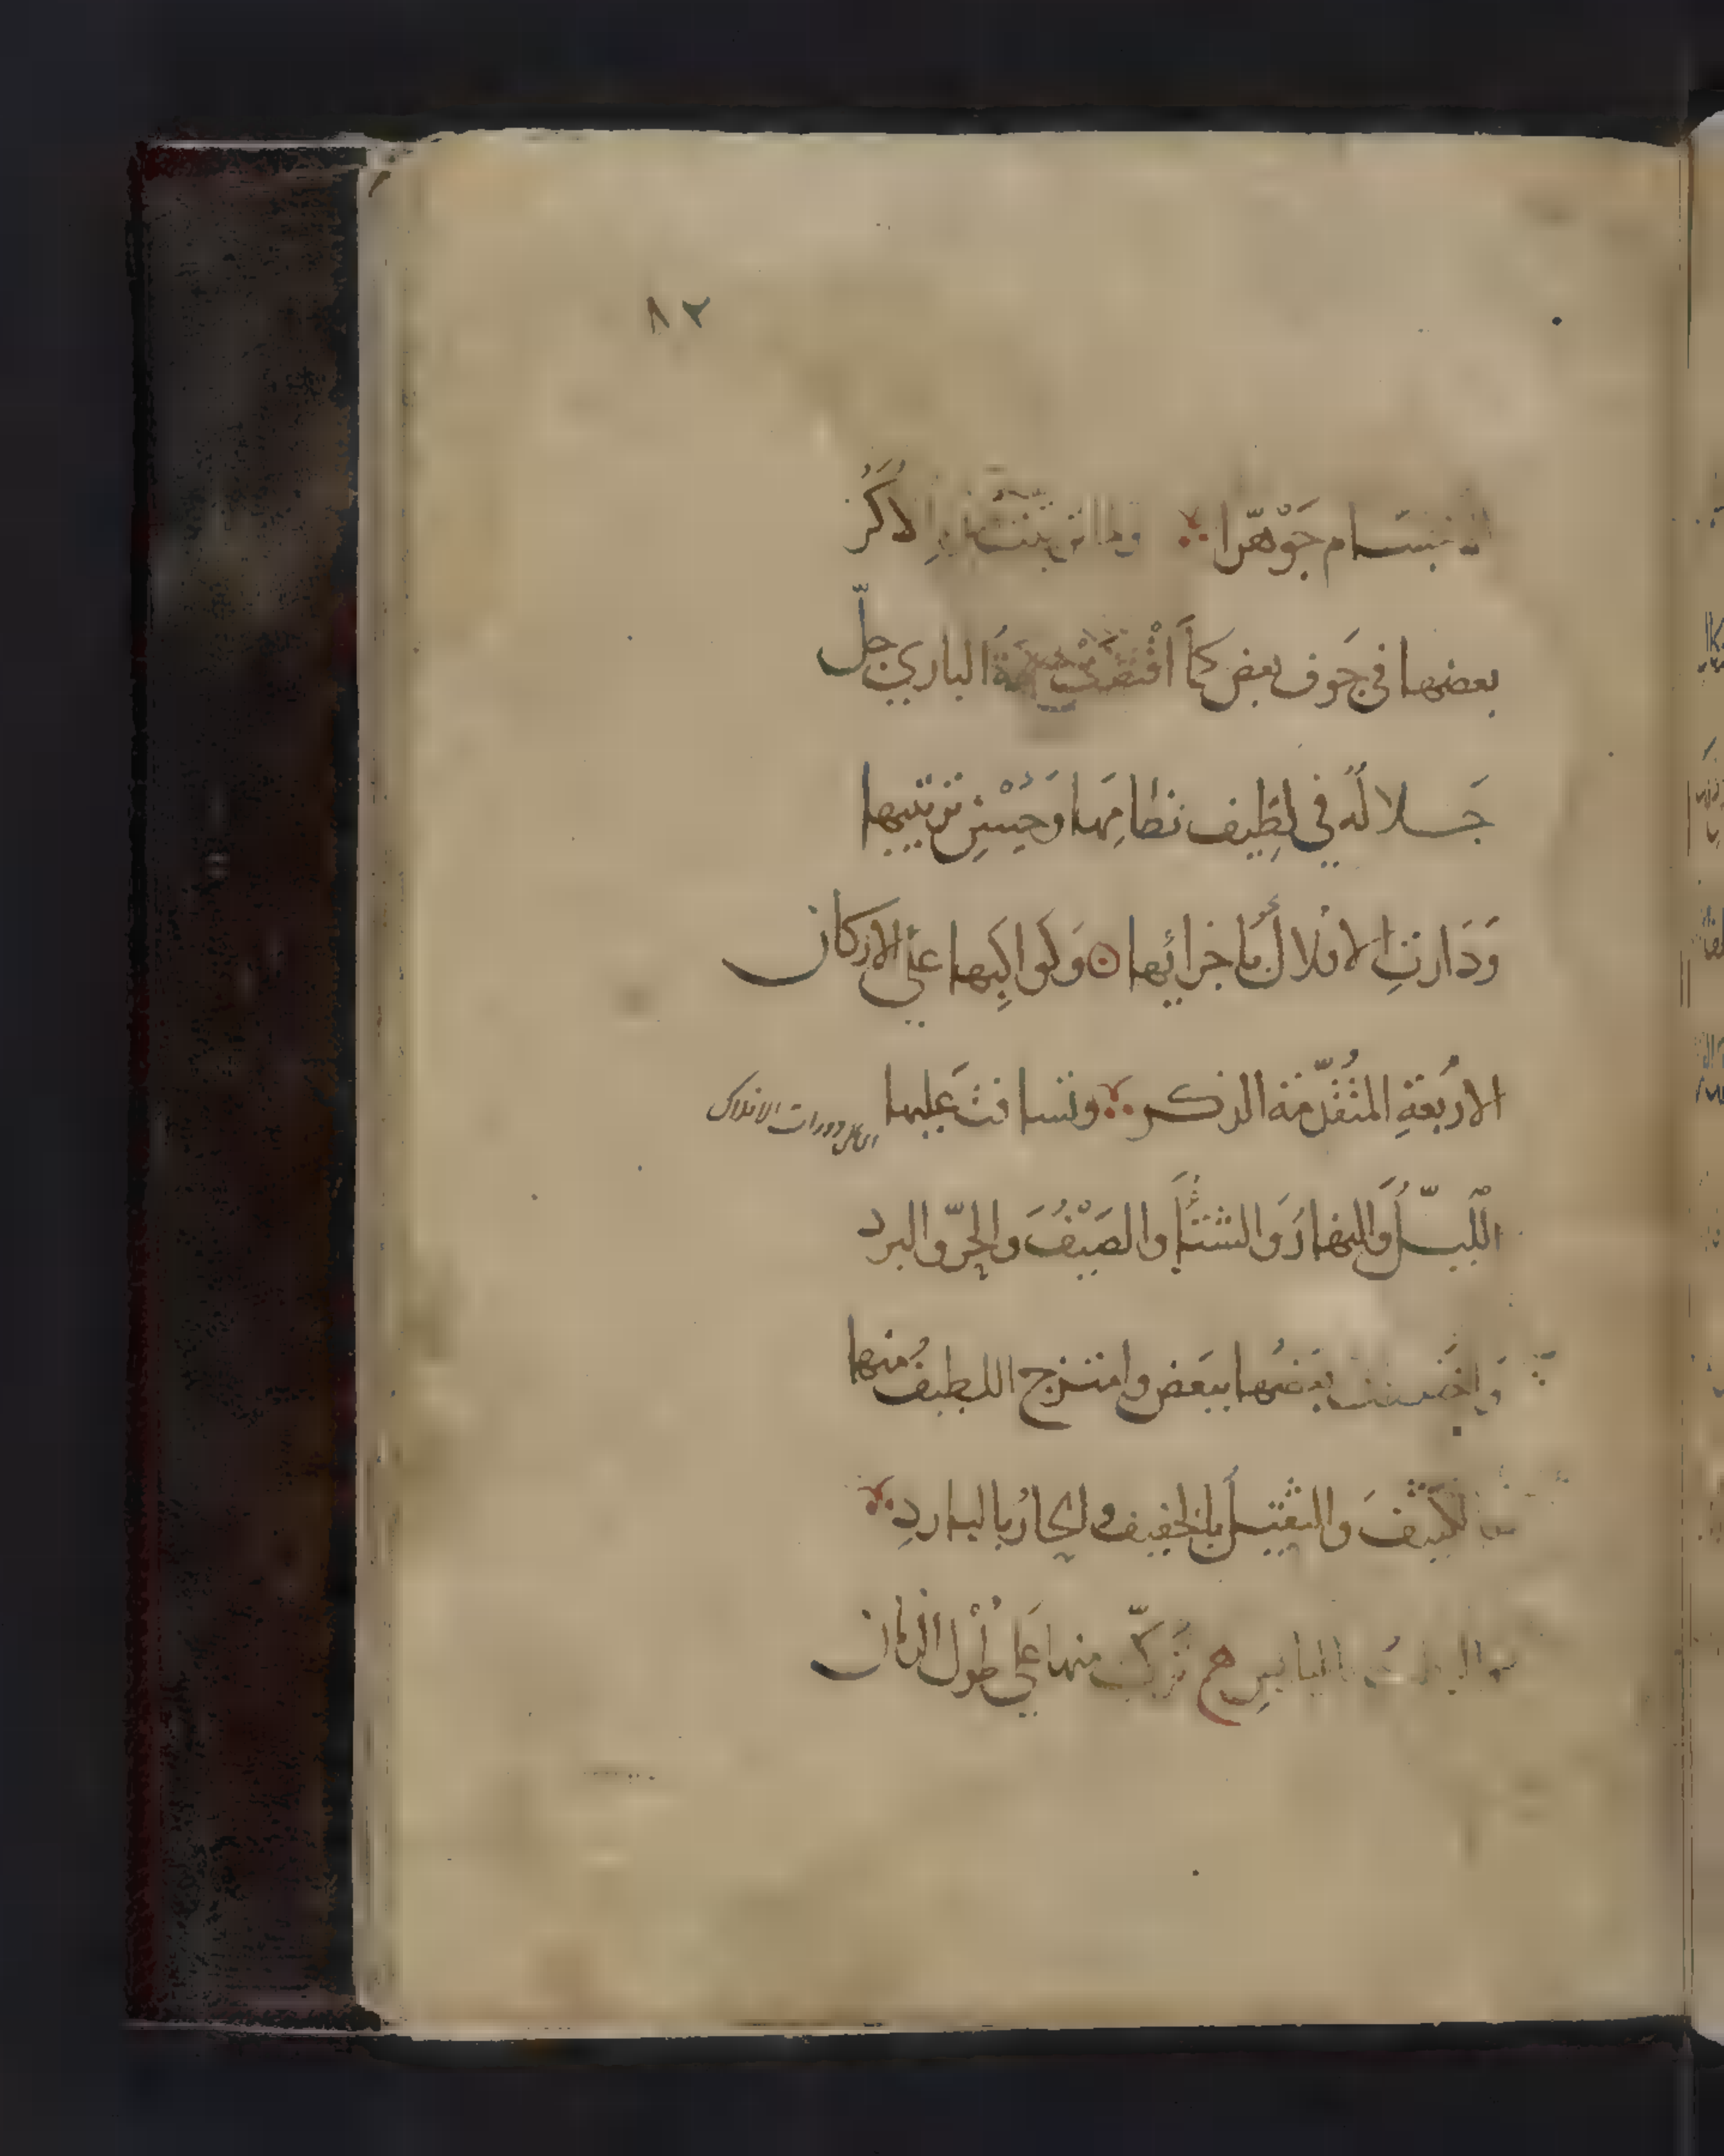 ٨٢
الاجسام جَوْهَرا الاُكَرُ
بعضها في جَوف بعض كمَا اقتضَتْ البارى جلّ
جَلالُه في لطِيف نظامِها وَحُسْنِ ترتيبها
وَدَارتِ الافلاكُ باجزائها وَكواكِبها على الاركان
الاربَعةِ المتُقَدّمة الذكر وتساقتْ عَليها
دورات الافلاك
اللّيلُ والنهارُ وَالشتَاُ والصَيْفُ وَالحرّ والبرد
وَاختلطت بعضُها ببَعض وامتزج اللطيفُ منها
بالكثيفَ والثقيلُ بالخفيف والحارُ بالباردِ
والرطبُ باليابسِ تركّب منها على طُول الزمان